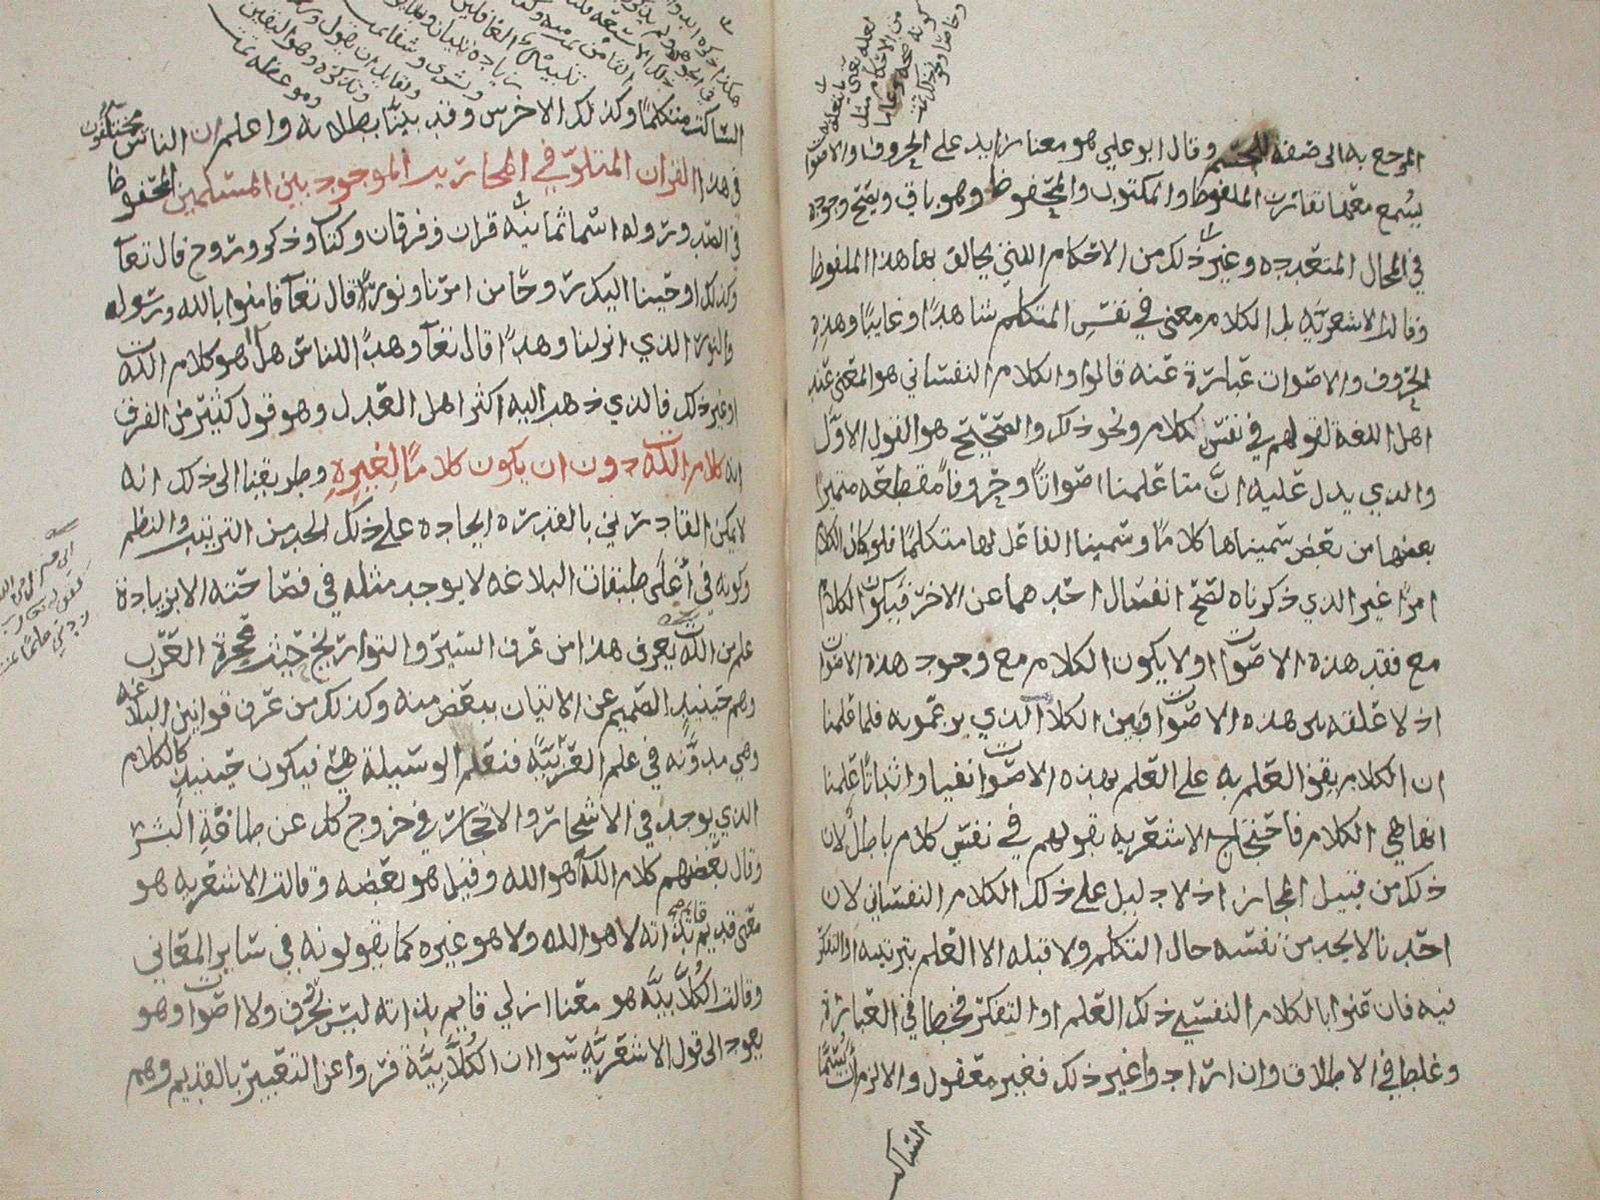 المرجع به الى صفة للجسم وقال ابو علي هو معنا زايد على الحروف والاصوات
يسمع معها تقارن الملفوظ والمكتوب والمحفوظ وهو باقي ويصح وجوده
في المحال المتعدده وغير ذلك من الاحكام اللتي يخالف بها هذا الملفوظ
وقالت الاشعريه بل الكلام معنى في نفس المتكلم شاهدا او غايبا وهذه
الحروف والاصوات عبارة عنه قالوا والكلام النفساني هو المعنى عند
اهل اللغة لقولهم في نفسي كلام ونحو ذلك والصحيح هو القول الاول
والذي يدل عليه ان متا علمنا اصواتا وحروفا مقطعه متميزا
بعضها من بعض سميناها كلاما وسمينا الفاعل لها متكلما فلو كان الكلام
امرا غير الذي ذكرناه لصح انفصال احدهما عن الاخر فيكون الكلام
مع فقد هذه الاصوات او لا يكون الكلام مع وجود هذه الاصوات
اذ لا علقه بين هذه الاصوات وبين الكلام الذي يزعمونه فلما علمنا
ان الكلام يقف العلم به على العلم بهذه الاصوات نفيا واثباتا علمنا
انها هي الكلام فاحتجاج الاشعريه بقولهم في نفسي كلام باطل لان
ذلك من قبيل المجاز اذ لا دليل على ذلك الكلام النفساني لان
احدنا لا يجد من نفسه حال التكلم ولا قبله الا العلم بترتيبه او التفكر
فيه فان عنوا بالكلام النفسي ذلك العلم او التفكر فخطا في العبارة
وغلط في الاطلاق وان ارادوا غير ذلك فغير معقول والا لزم ان يسما
الساكت
الساكت متكلما وكذلك الاخرس وقد بينا بطلانه واعلم ان الناس مختلفون
في هذا القران المتلو في المحاريب الموجود بين المسلمين المحفوظ
في الصدور وله اسما ثمانيه قران وفرقان وكتاب وذكر وروح قال تعا
وكذلك اوحينا اليك روحا من امرنا ونور قال تعا فامنوا بالله ورسوله
والنور الذي انزلنا وهدا قال تعا وهدا للناس هل هو كلام الله
او غير ذلك فالذي ذهب اليه اكثر اهل العدل وهو قول كثير من الفرق
انه كلام الله دون ان يكون كلاما لغيره وطريقنا الى ذلك انه
لا يمكن القادرين بالقدره ايجاده على ذلك الحد من الترتيب والنظم
وكونه في اعلى طبقات البلاغه لا يوجد مثله في فصاحته الا بزيادة
علم من الله يعرف هذا من عرف السير والتواريخ حيث عجزة العرب
وهم حينيذ الصميم عن الاتيان ببعض منه وكذلك من عرف قوانين البلاغه
وهي مدونه في علم العربية فنعلم الوسيلة فيكون حينيذ كالكلام
الذي يوجد في الاشجار والاحجار في خروج كل عن طاقة البشر
وقال بعضهم كلام الله هو الله وقيل هو بعضه وقالت الاشعريه هو
معنى قديم قائم بذاته لا هو الله ولا هو غيره كما يقولونه في ساير المعاني
وقالت الكلابيه هو معنا ازلي قايم بذاته ليس بحرف ولا اصوات وهو
يعود الى قول الاشعريه سوا ان الكلابيه فروا عن التعبير بالقديم وهم